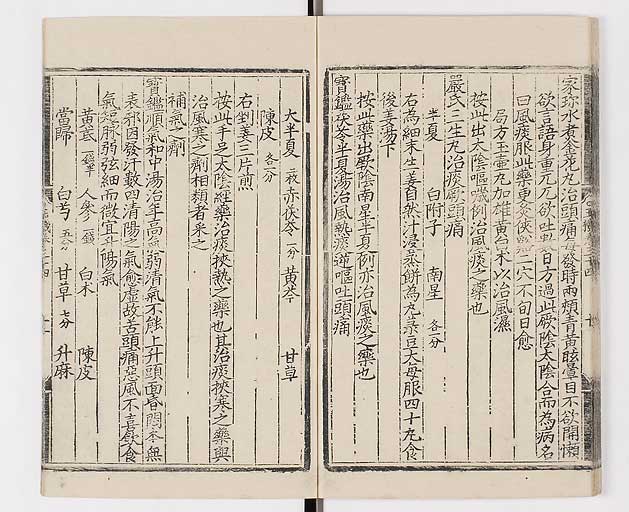 家珎水煮金花丸治頭痛每發時兩頰青黃眩暈目不欲開懶
欲言語身重兀兀欲吐數日方過此厥陰太陰合而為病名
曰風痰服此藥更灸俠谿二穴不旬日愈
局方玉壺丸加雄黃白朮以治風濕
按此出太陰嘔嘰例治風痰之藥也
嚴氏三生丸治痰厥頭痛
半夏 白附子 南星 各一分
右為細末生姜自然汁浸蒸餅為丸菉豆大每服四十丸食
後姜湯下
按此藥出厥陰南星半夏例亦治風痰之藥也
寶鑑茯苓半夏湯治風熱痰逆嘔吐頭痛
大半夏 二枚 赤茯苓 一分 黃芩 甘草
陳皮 各二分
右剉姜三片煎
按此手足太陰經藥治痰挾熱之藥也其治痰挾寒之藥與
治風寒之劑相類者采之
補氣之劑
寶鑑順氣和中湯治年高氣弱清氣不能上升頭面昏悶本無
表邪因發汗數四清陽之氣愈虛故苦頭痛惡風不喜飲食
氣短脉弱弦細而微宜升陽氣
黃芪 一錢半 人參 一錢 白朮 陳皮
當歸 白芍 五分 甘草 七分 升麻